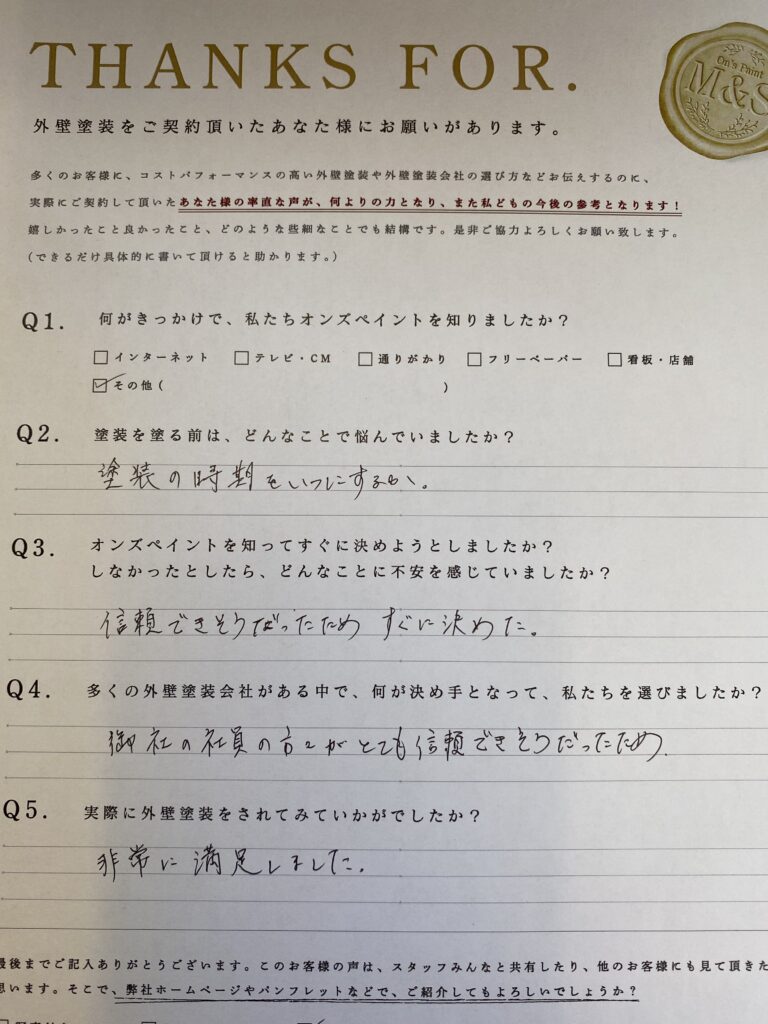 THANKS FOR.
On's Paint
M&S
外壁塗装をご契約頂いたあなた様にお願いがあります。
多くのお客様に、コストパフォーマンスの高い外壁塗装や外壁塗装会社の選び方などお伝えするのに、
実際にご契約して頂いたあなた様の率直な声が、何よりの力となり、また私どもの今後の参考となります！
嬉しかったこと良かったこと、どのような些細なことでも結構です。是非ご協力よろしくお願い致します。
(できるだけ具体的に書いて頂けると助かります。)
Q1. 何がきっかけで、私たちオンズペイントを知りましたか？
□インターネット □テレビ・CM □通りがかり □フリーペーパー □看板・店舗
☑その他（ ）
Q2. 塗装を塗る前は、どんなことで悩んでいましたか？
塗装の時期をいつにするか。
Q3. オンズペイントを知ってすぐに決めようとしましたか？
しなかったとしたら、どんなことに不安を感じていましたか？
信頼できそうだったため すぐに決めた。
Q4. 多くの外壁塗装会社がある中で、何が決め手となって、私たちを選びましたか？
御社の社員の方々がとても信頼できそうだったため.
Q5. 実際に外壁塗装をされてみていかがでしたか？
非常に満足しました。
最後までご記入ありがとうございます。このお客様の声は、スタッフみんなと共有したり、他のお客様にも見て頂きた
思います。そこで、弊社ホームページやパンフレットなどで、ご紹介してもよろしいでしょうか？